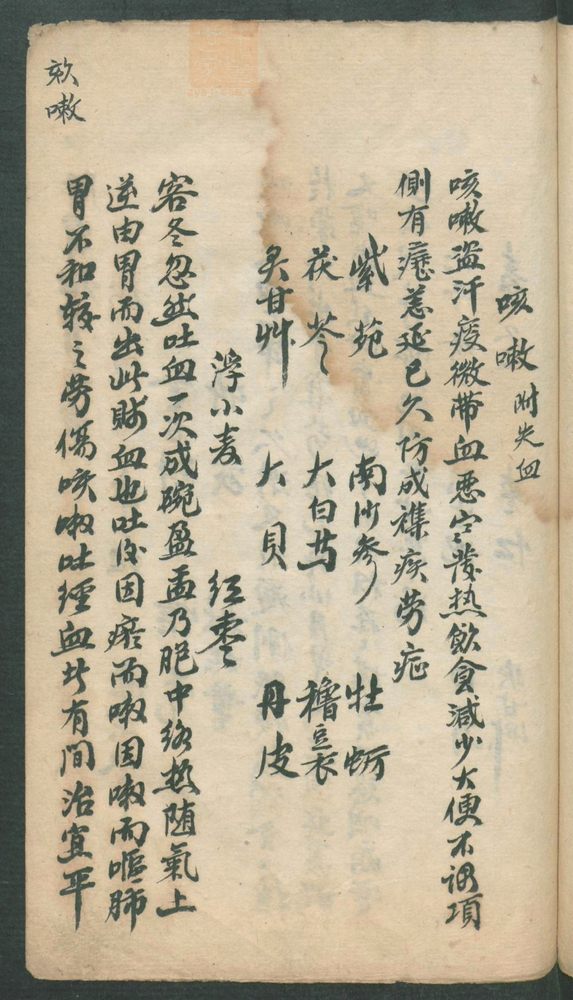 咳嗽 附失血
咳嗽盗汗痰微带血恶寒发热飲食減少大便不调項
側有癧恙延已久防成襍疾勞症
紫苑 南沙參 牡蛎
茯苓 大白芍 穭豆衣
炙甘艸 大貝 丹皮
浮小麦 红棗
客冬忽然吐血一次成碗盈盂乃胞中络热随氣上
逆由胃而出此 血也吐后因瘀而嗽因嗽而嘔肺
胃不和較之勞傷咳嗽吐經血者有间治宜平
欬嗽